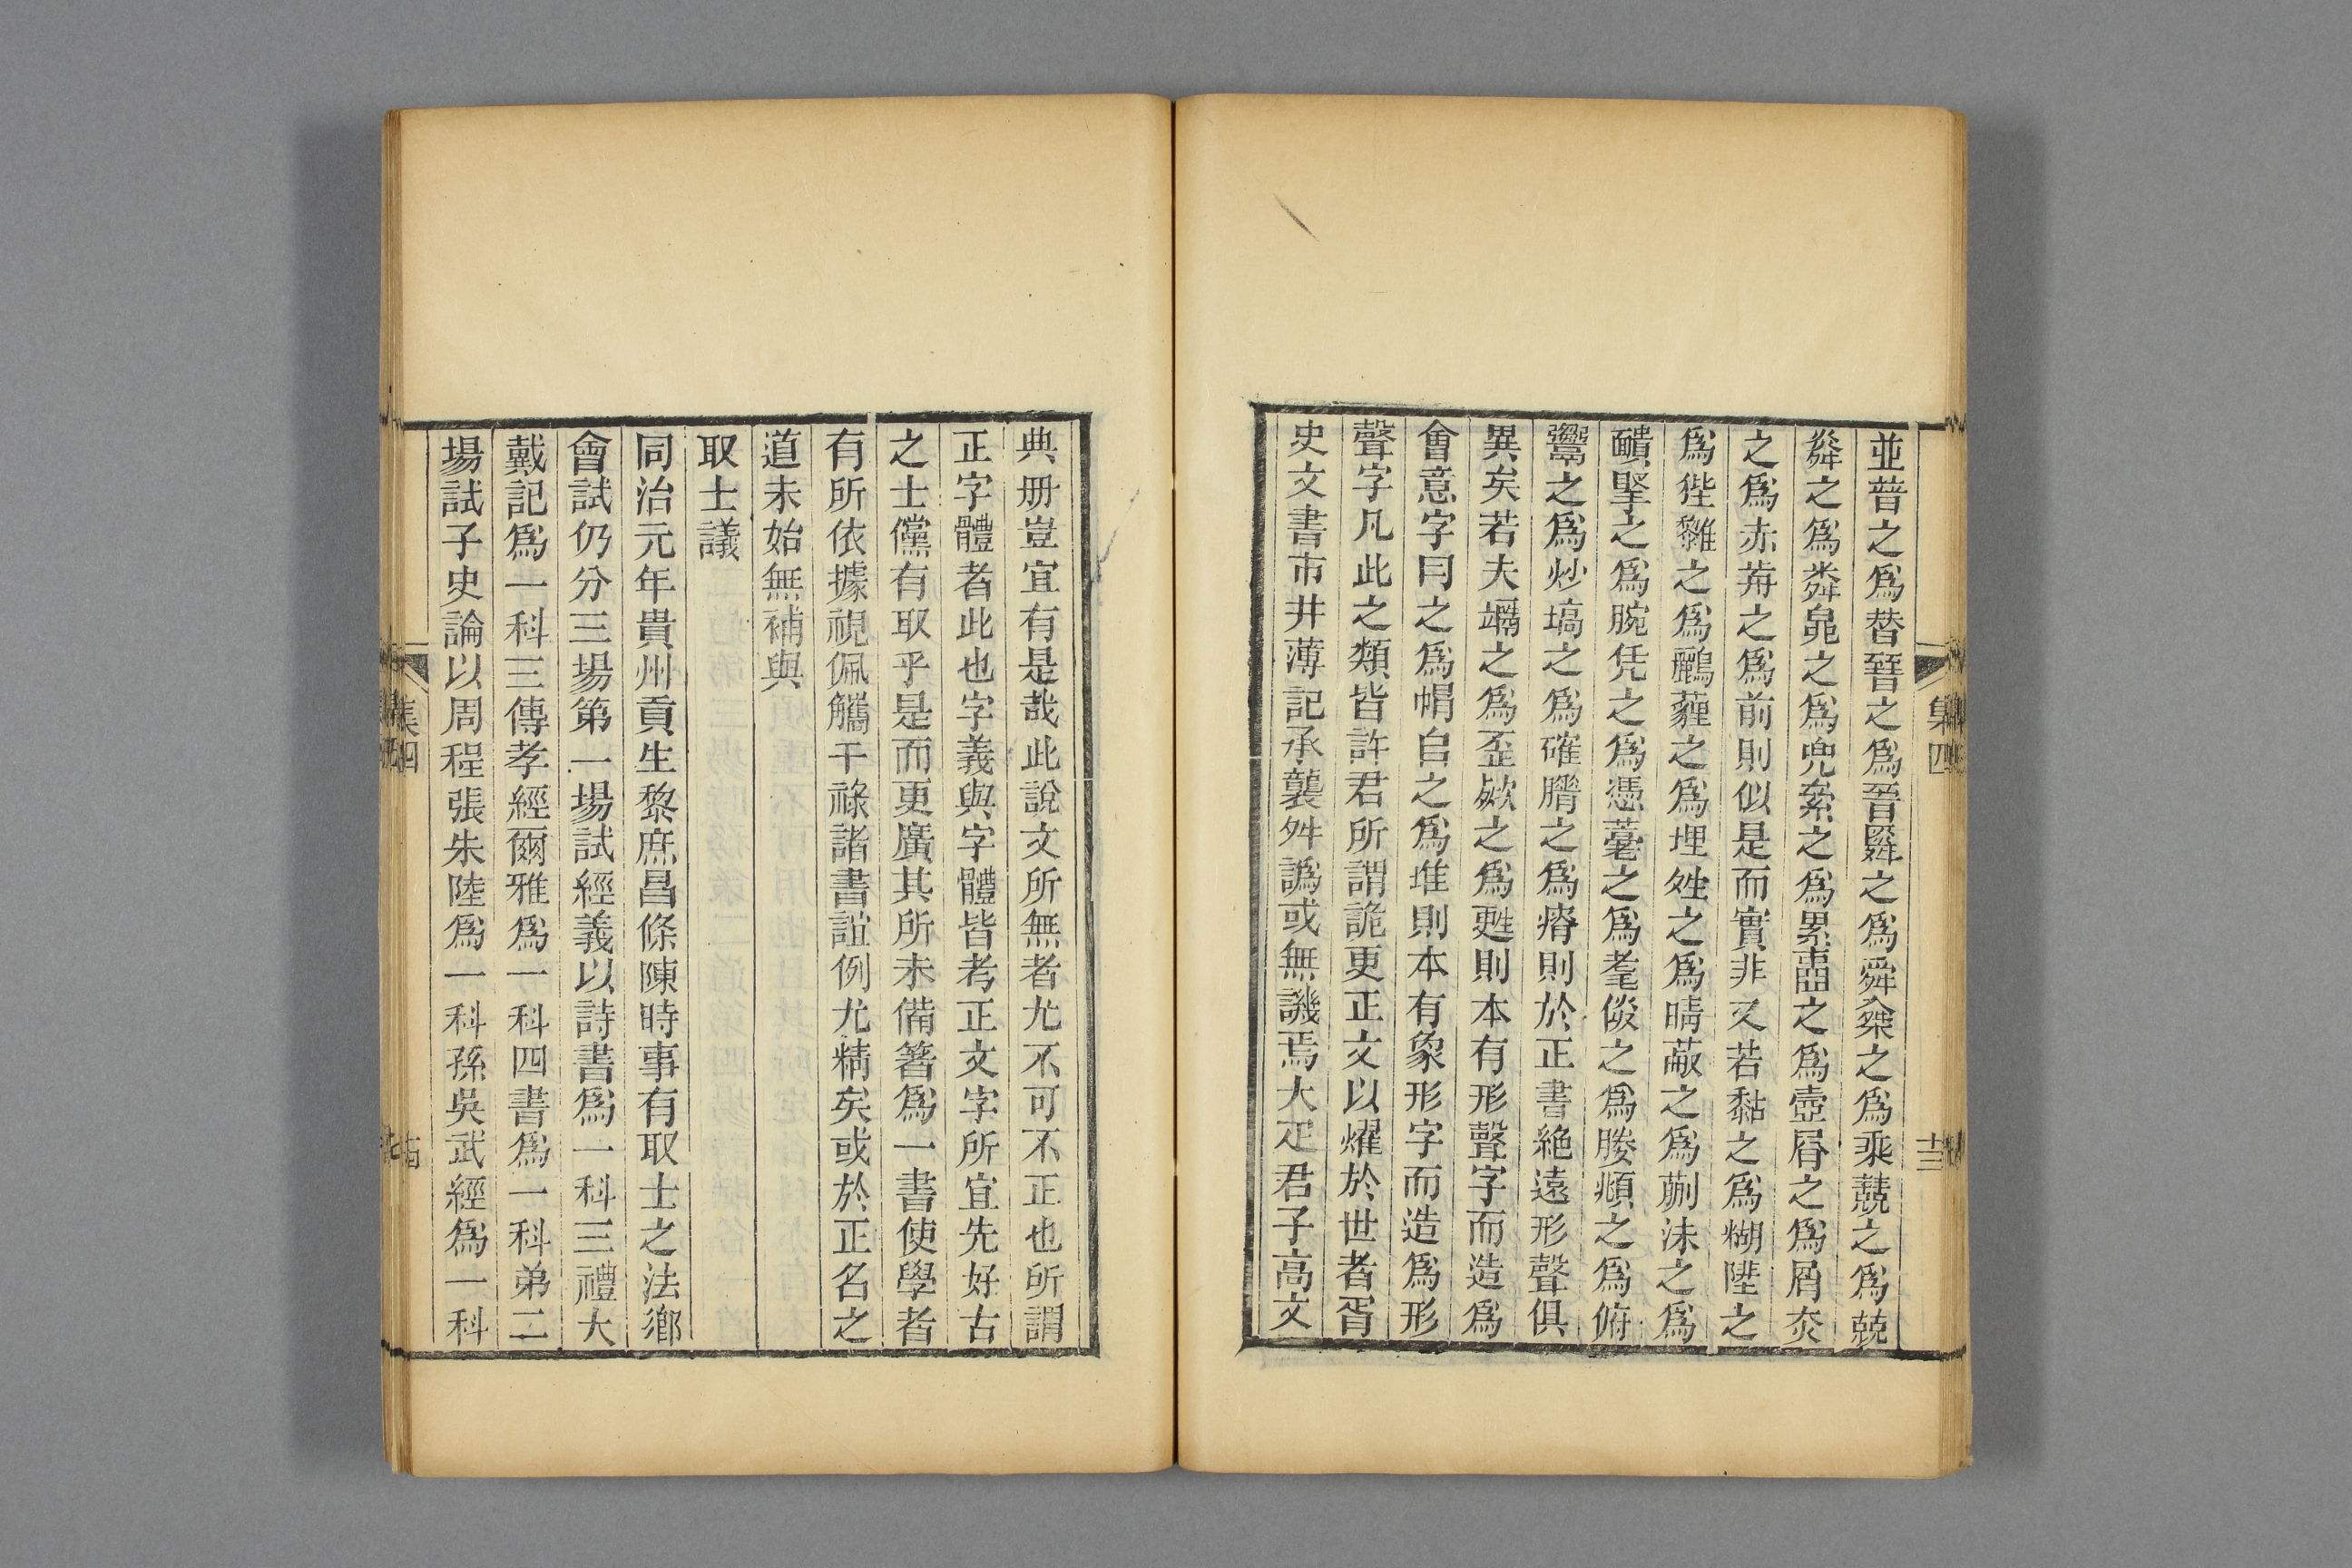 並暜之爲替晉之爲晋䑞之爲舜椉之爲乘兢之爲兢
粦之爲粦皃之爲兜絫之爲累壺之爲壼屑之爲屑灻
之爲赤歬之爲前則似是而實非又若黏之爲糊陞之
爲狴雞之爲鸝薶之爲埋姓之爲晴蔽之爲蒯沬之爲
靧掔之爲腕凭之爲憑薹之爲耄倓之爲賸頫之爲俯
鬻之爲炒塙之爲確膌之爲瘠則於正書絶遠形聲俱
異矣若夫竵之爲歪㱃之爲甦則本有形聲字而造爲
會意字冃之爲帽𠂤之爲堆則本有象形字而造爲形
聲字凡此之類皆許君所謂詭更正文以燿於世者胥
史文書市井薄記承襲舛譌或無譏焉大疋君子高文
集四
十三
典册豈宜有是哉此說文所無者尤不可不正也所謂
正字體者此也字義與字體皆考正文字所宜先好古
之士儻有取乎是而更廣其所未備箸爲一書使學者
有所依據視佩觿干祿諸書諠例尤精矣或於正名之
道未始無補與
取士議
同治元年貴州貢生黎庶昌條陳時事有取士之法鄉
會試仍分三場第一場試經義以詩書爲一科三禮大
戴記爲一科三傳孝經爾雅爲一科四書爲一科弟二
場試子史論以周程張朱陸爲一科孫吳武經爲一科
集四